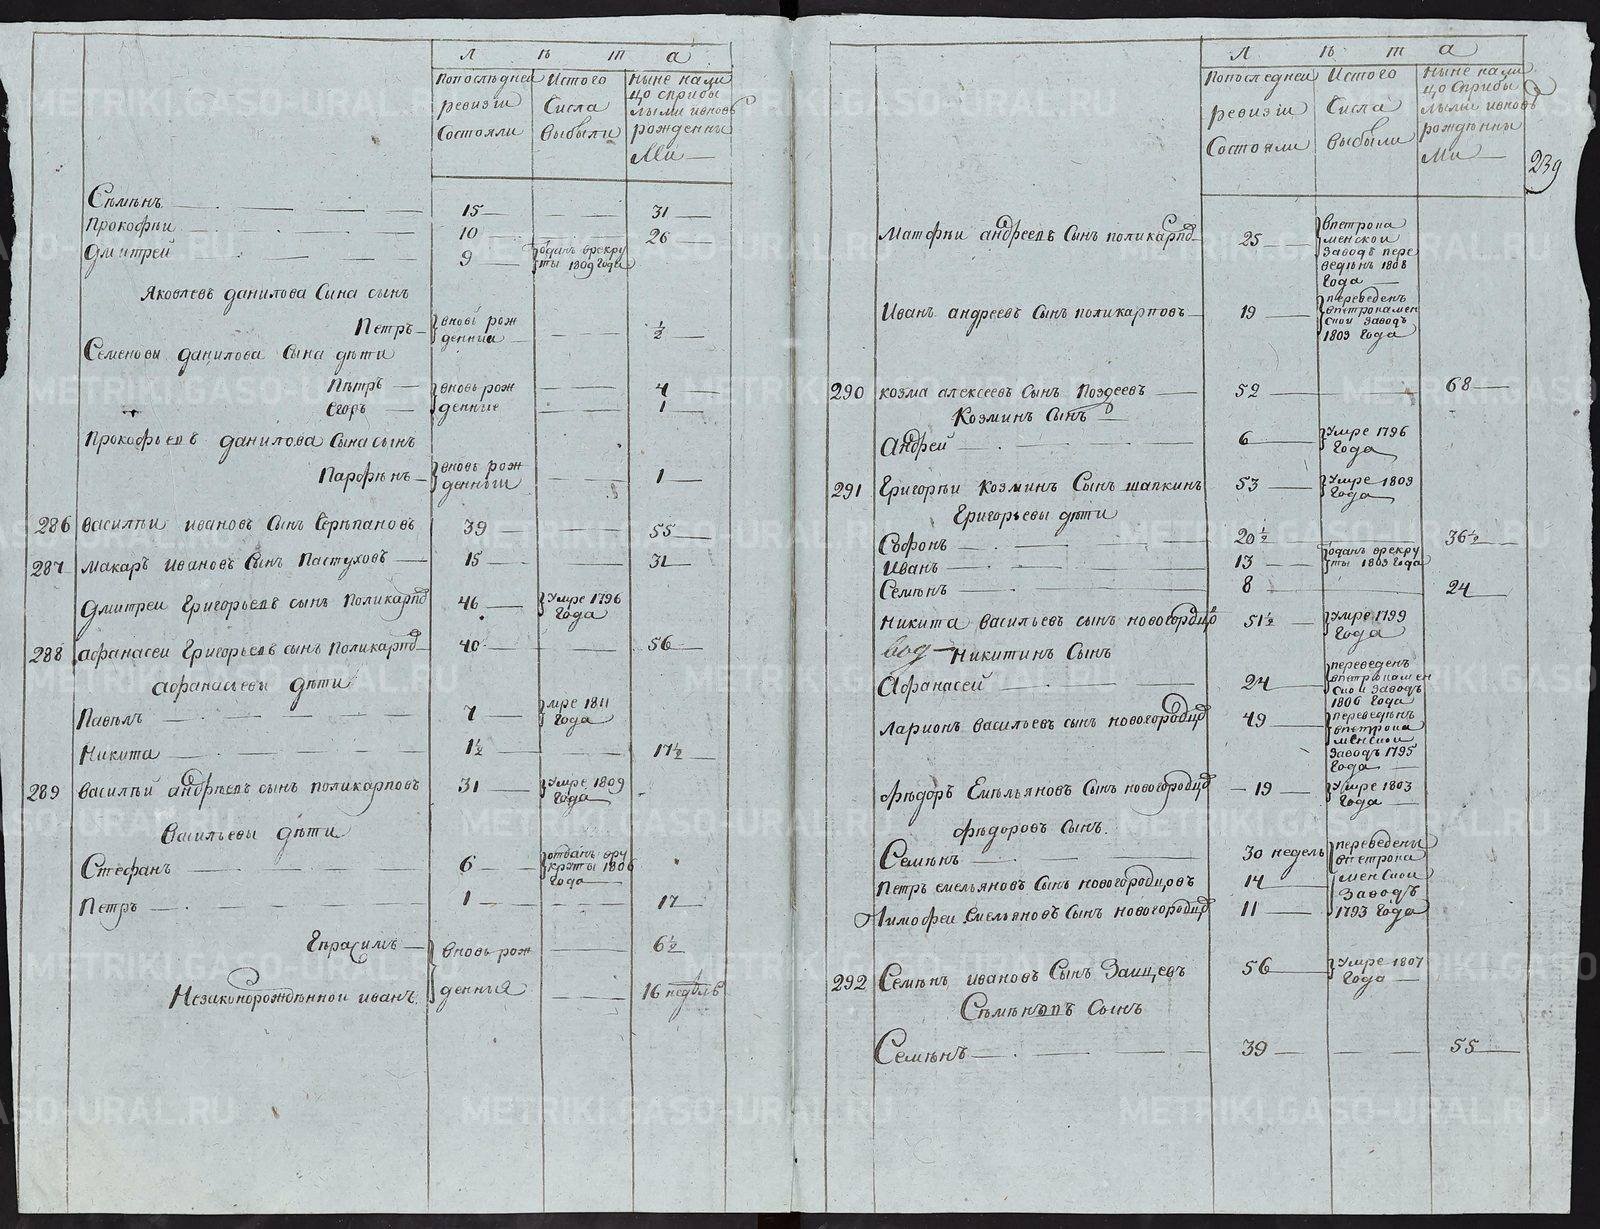 Л ѣ т а
Попослѣдней ревизіи Состояли
Истого Сисла выбыли
Ныне нали цо сприбы лыми ивновь рожденны ми
Сѣмѣнъ 15 31
Прокофпи 10 26
Дмитрей 9 одань врекру ты 1809 года
Яковлевъ данилова Сына сынъ
Петръ вновь рож денниа ½
Семеновы данилова Сына дѣти
Пѣтръ вновь рож 4
Егоръ денние 1
Прокофьевъ данилова Сына сынъ
Парфѣнъ вновь рож денныи 1
286 василѣи ивановъ Сынъ Серѣпановъ 39 55
287 Макаръ Ивановъ Сынъ Пастуховъ 15 31
Дмитреи Григорьевъ сынъ Поликарпо 46 Умре 1796 года
288 афанасеи Григорьевъ сынъ Поликарпо 40 56
афанасьевы дѣти
Павѣлъ 7 умре 1811 года
Никита 1½ 17½
289 Василѣй андрѣевъ сынъ поликарповъ 31 Умре 1809 года
Васильевы дѣти
Стефанъ 6 отданъ вру круты 1806 года
Петръ 1 17
Гѣрасимъ вновь рож 6½
Незаконорождѣнной иванъ денныя 16 недѣль
Л ѣ т а
Попоследней ревизіи Состояли
Истого Сисла выбыли
Ныне нали цо сприбы лыми ивновь рождѣнны ми
239
Матфѣи андреевъ Сынъ поликарпо 25 впетропа менскои заводъ пере ведѣнъ 1808 года
Иванъ андреевъ Сынъ поликарповъ 19 переведенъ впетропамен скои заводъ 1803 года
290 козма алексеевъ Сынъ Поздеевъ 52 68
Козминъ Сынъ
Андрей 6 умре 1796 года
291 Григорѣи Козминъ Сынъ шапкинъ 53 Умре 1809 года
Григорьевы дѣти
Софонъ 20½ 36½
Иванъ 13 оданъ врекру ты 1803 года
Семѣнъ 8 24
Никита васильевъ сынъ новогородцо 51½ умре 1799 года
вод Никитинъ Сынъ
Афанасей 24 переведенъ впетропамен скои заводъ 1806 года
Ларионъ васильевъ сынъ новогородцо 49 переведѣнъ впетропа менскои заводъ 1795 года
Фѣдоръ Емѣльяновъ Сынъ новогородцо 19 Умре 1803 года
Фѣдоровъ Сынъ.
Семѣнъ 30 недель переведены впетропа
Петръ емельяновъ Сынъ новогородцовъ 14 менскои заводъ
Тимофеи Емельяновъ Сынъ новогородцо 11 1793 года
292 Семѣнъ ивановъ Сынъ Заицевъ 56 Умре 1807 года
Сѣмѣновъ Сынъ
Семѣнъ 39 55